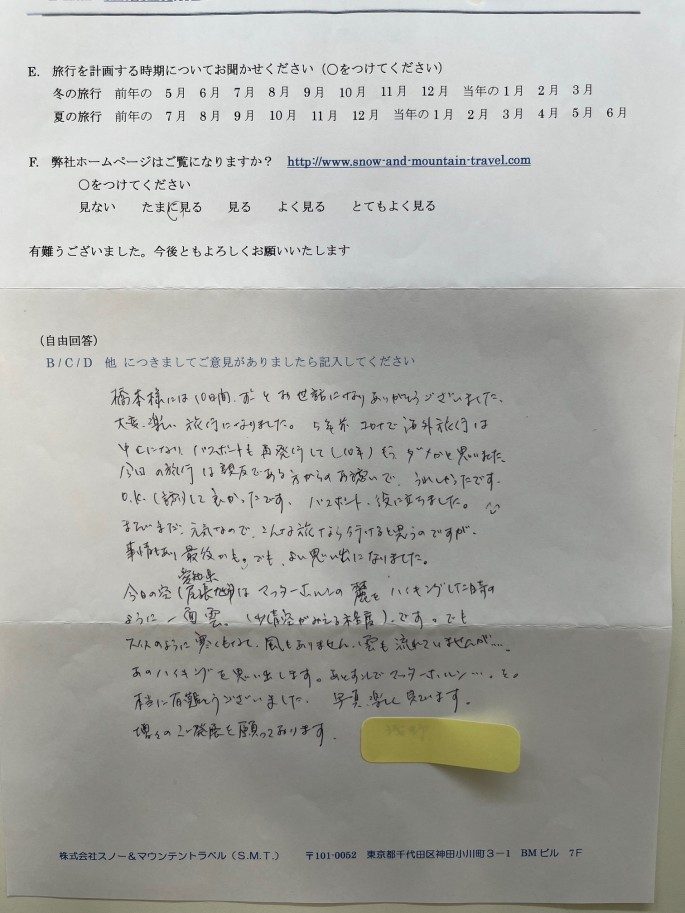 E. 旅行を計画する時期についてお聞かせください（○をつけてください）
冬の旅行 前年の 5月 6月 7月 8月 9月 10月 11月 12月 当年の1月 2月 3月
夏の旅行 前年の 7月 8月 9月 10月 11月 12月 当年の1月 2月 3月 4月 5月 6月
F. 弊社ホームページはご覧になりますか？ http://www.snow-and-mountain-travel.com
○をつけてください
見ない たまに見る 見る よく見る とてもよく見る
有難うございました。今後ともよろしくお願いいたします
（自由回答）
B/C/D 他 につきましてご意見がありましたら記入してください
橋本様には10日間、ずっとお世話になりありがとうございました、
大変、楽しい旅行になりました。5年前 コロナで海外旅行は
中止になり、パスポートも再発行して(10年) もうダメかと思いました
今回の旅行は親友である方からのお誘いで、うれしかったです。
O.K.(訳あり)して良かったです、パスポート、役に立ちました。
まだまだ、元気なので、こんな旅なら行けると思うのですが、
事情もあり最後かも。でも、よい思い出になりました。
愛知県
今日の空(尾張地方)はマッターホルンの麓をハイキングした時の
ように一面雲。(少し青空がみえる程度)です。でも
スイスのように寒くもなし、風もありません、雲も流れていませんが…。
あのハイキングを思い出します。あと少しでマッターホルン…。と。
本当に有難うございました、写真、楽しく見ています。
増々のご発展を願っております。
株式会社スノー&マウンテントラベル（S.M.T.） 〒101-0052 東京都千代田区神田小川町3－1 BMビル 7F